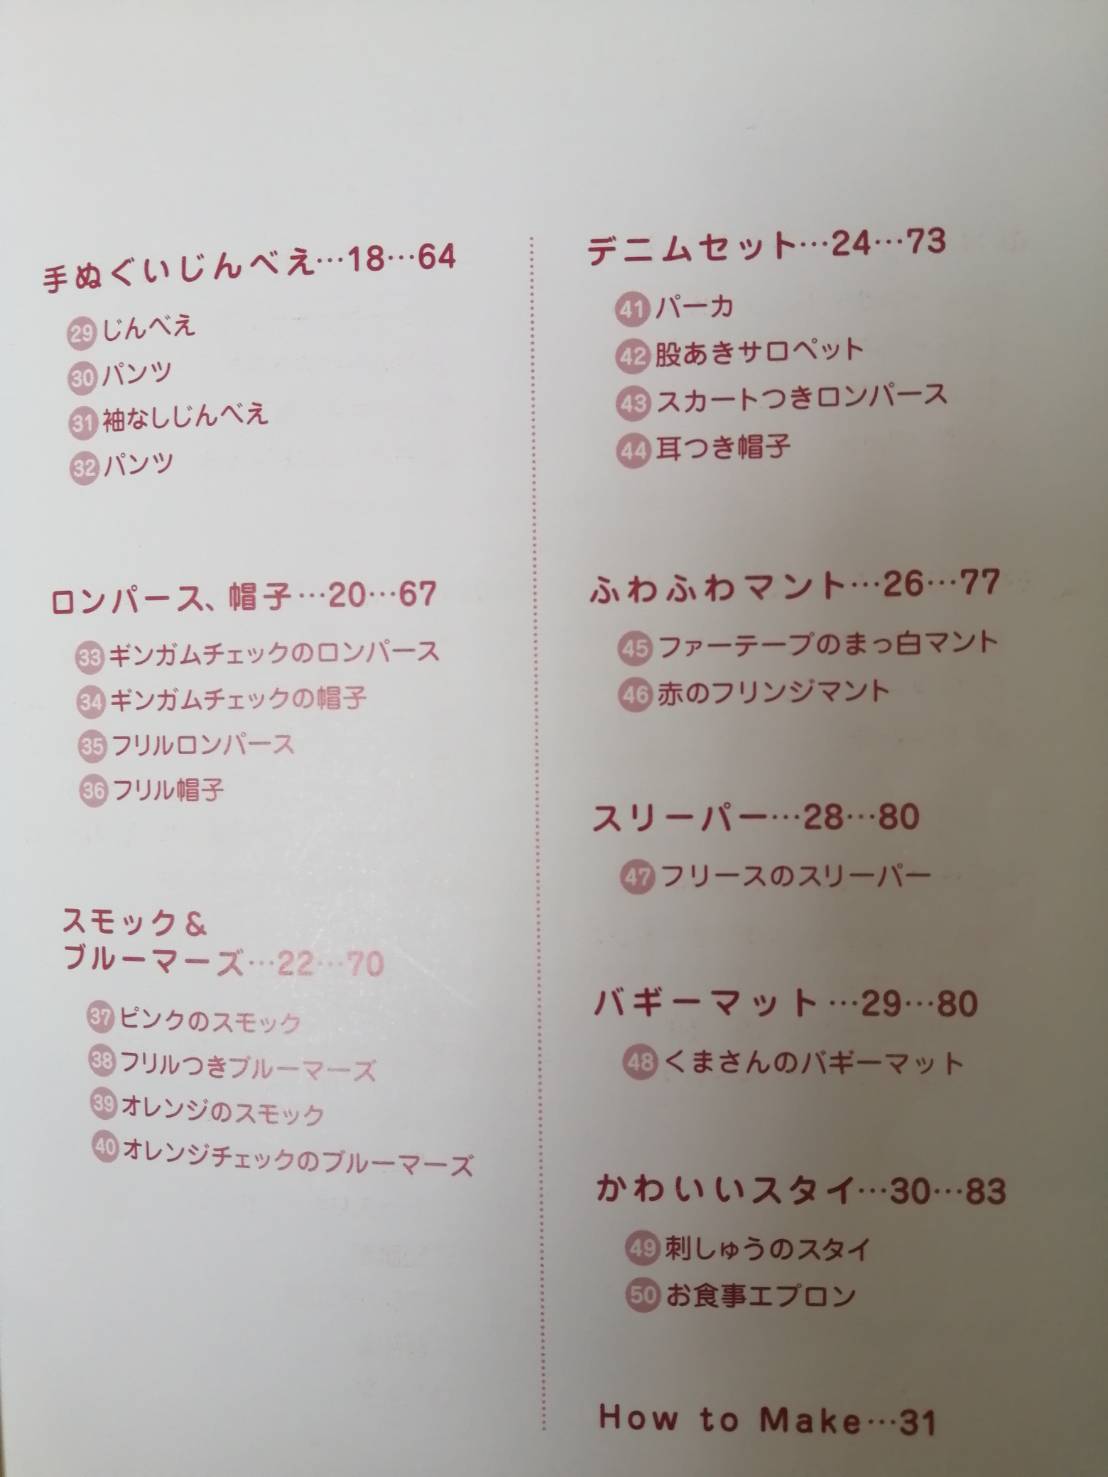 手ぬぐいじんべえ…18…64
29 じんべえ
30 パンツ
31 袖なしじんべえ
32 パンツ
ロンパース、帽子…20…67
33 ギンガムチェックのロンパース
34 ギンガムチェックの帽子
35 フリルロンパース
36 フリル帽子
スモック&
ブルーマーズ…22…70
37 ピンクのスモック
38 フリルつきブルーマーズ
39 オレンジのスモック
40 オレンジチェックのブルーマーズ
デニムセット…24…73
41 パーカ
42 股あきサロペット
43 スカートつきロンパース
44 耳つき帽子
ふわふわマント…26…77
45 ファーテープのまっ白マント
46 赤のフリンジマント
スリーパー…28…80
47 フリースのスリーパー
バギーマット…29…80
48 くまさんのバギーマット
かわいいスタイ…30…83
49 刺しゅうのスタイ
50 お食事エプロン
How to Make…31